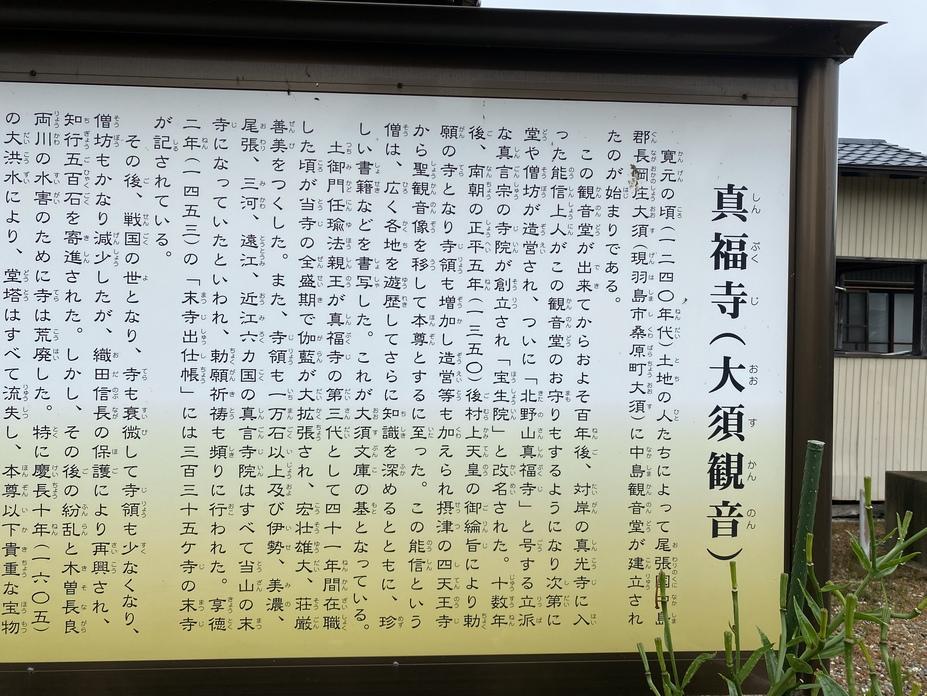 真福寺(大須観音)
寛元の頃(一二四〇年代)土地の人たちによって尾張国中島
郡長岡庄大須(現羽島市桑原町大須)に中島観音堂が建立され
たのが始まりである。
この観音堂が出来てからおよそ百年後、対岸の真光寺に入
った能信上人がこの観音堂のお守りもするようになり次第に
堂や僧坊が造営され、ついに「北野山真福寺」と号する立派
な真言宗の寺院が創立され「宝生院」と改名された。十数年
後、南朝の正平五年(一三五〇)後村上天皇の御綸旨により勅
願の寺となり寺領も増加し造営等も加えられ摂津の四天王寺
から聖観音像を移して本尊とするに至った。この能信という
僧は、広く各地を遊歴してさらに知識を深めるとともに、珍
しい書籍などを書写した。これが大須文庫の基となっている。
土御門任瑜法親王が真福寺の第三代として四十一年間在職
した頃が当寺の全盛期で伽藍が大拡張され、宏壮雄大、荘厳
善美をつくした。また、寺領も一万石以上及び伊勢、美濃、
尾張、三河、遠江、近江六カ国の真言寺院はすべて当山の末
寺になっていたといわれ、勅願祈祷も頻りに行われた。享徳
二年(一四五三)の「末寺出仕帳」には三百三十五ケ寺の末寺
が記されている。
その後、戦国の世となり、寺も衰微して寺領も少なくなり、
僧坊もかなり減少したが、織田信長の保護により再興され、
知行五百石を寄進された。しかし、その後の紛乱と木曽長良
両川の水害のために寺は荒廃した。特に慶長十年(一六〇五)
の大洪水により、堂塔はすべて流失し、本尊以下貴重な宝物